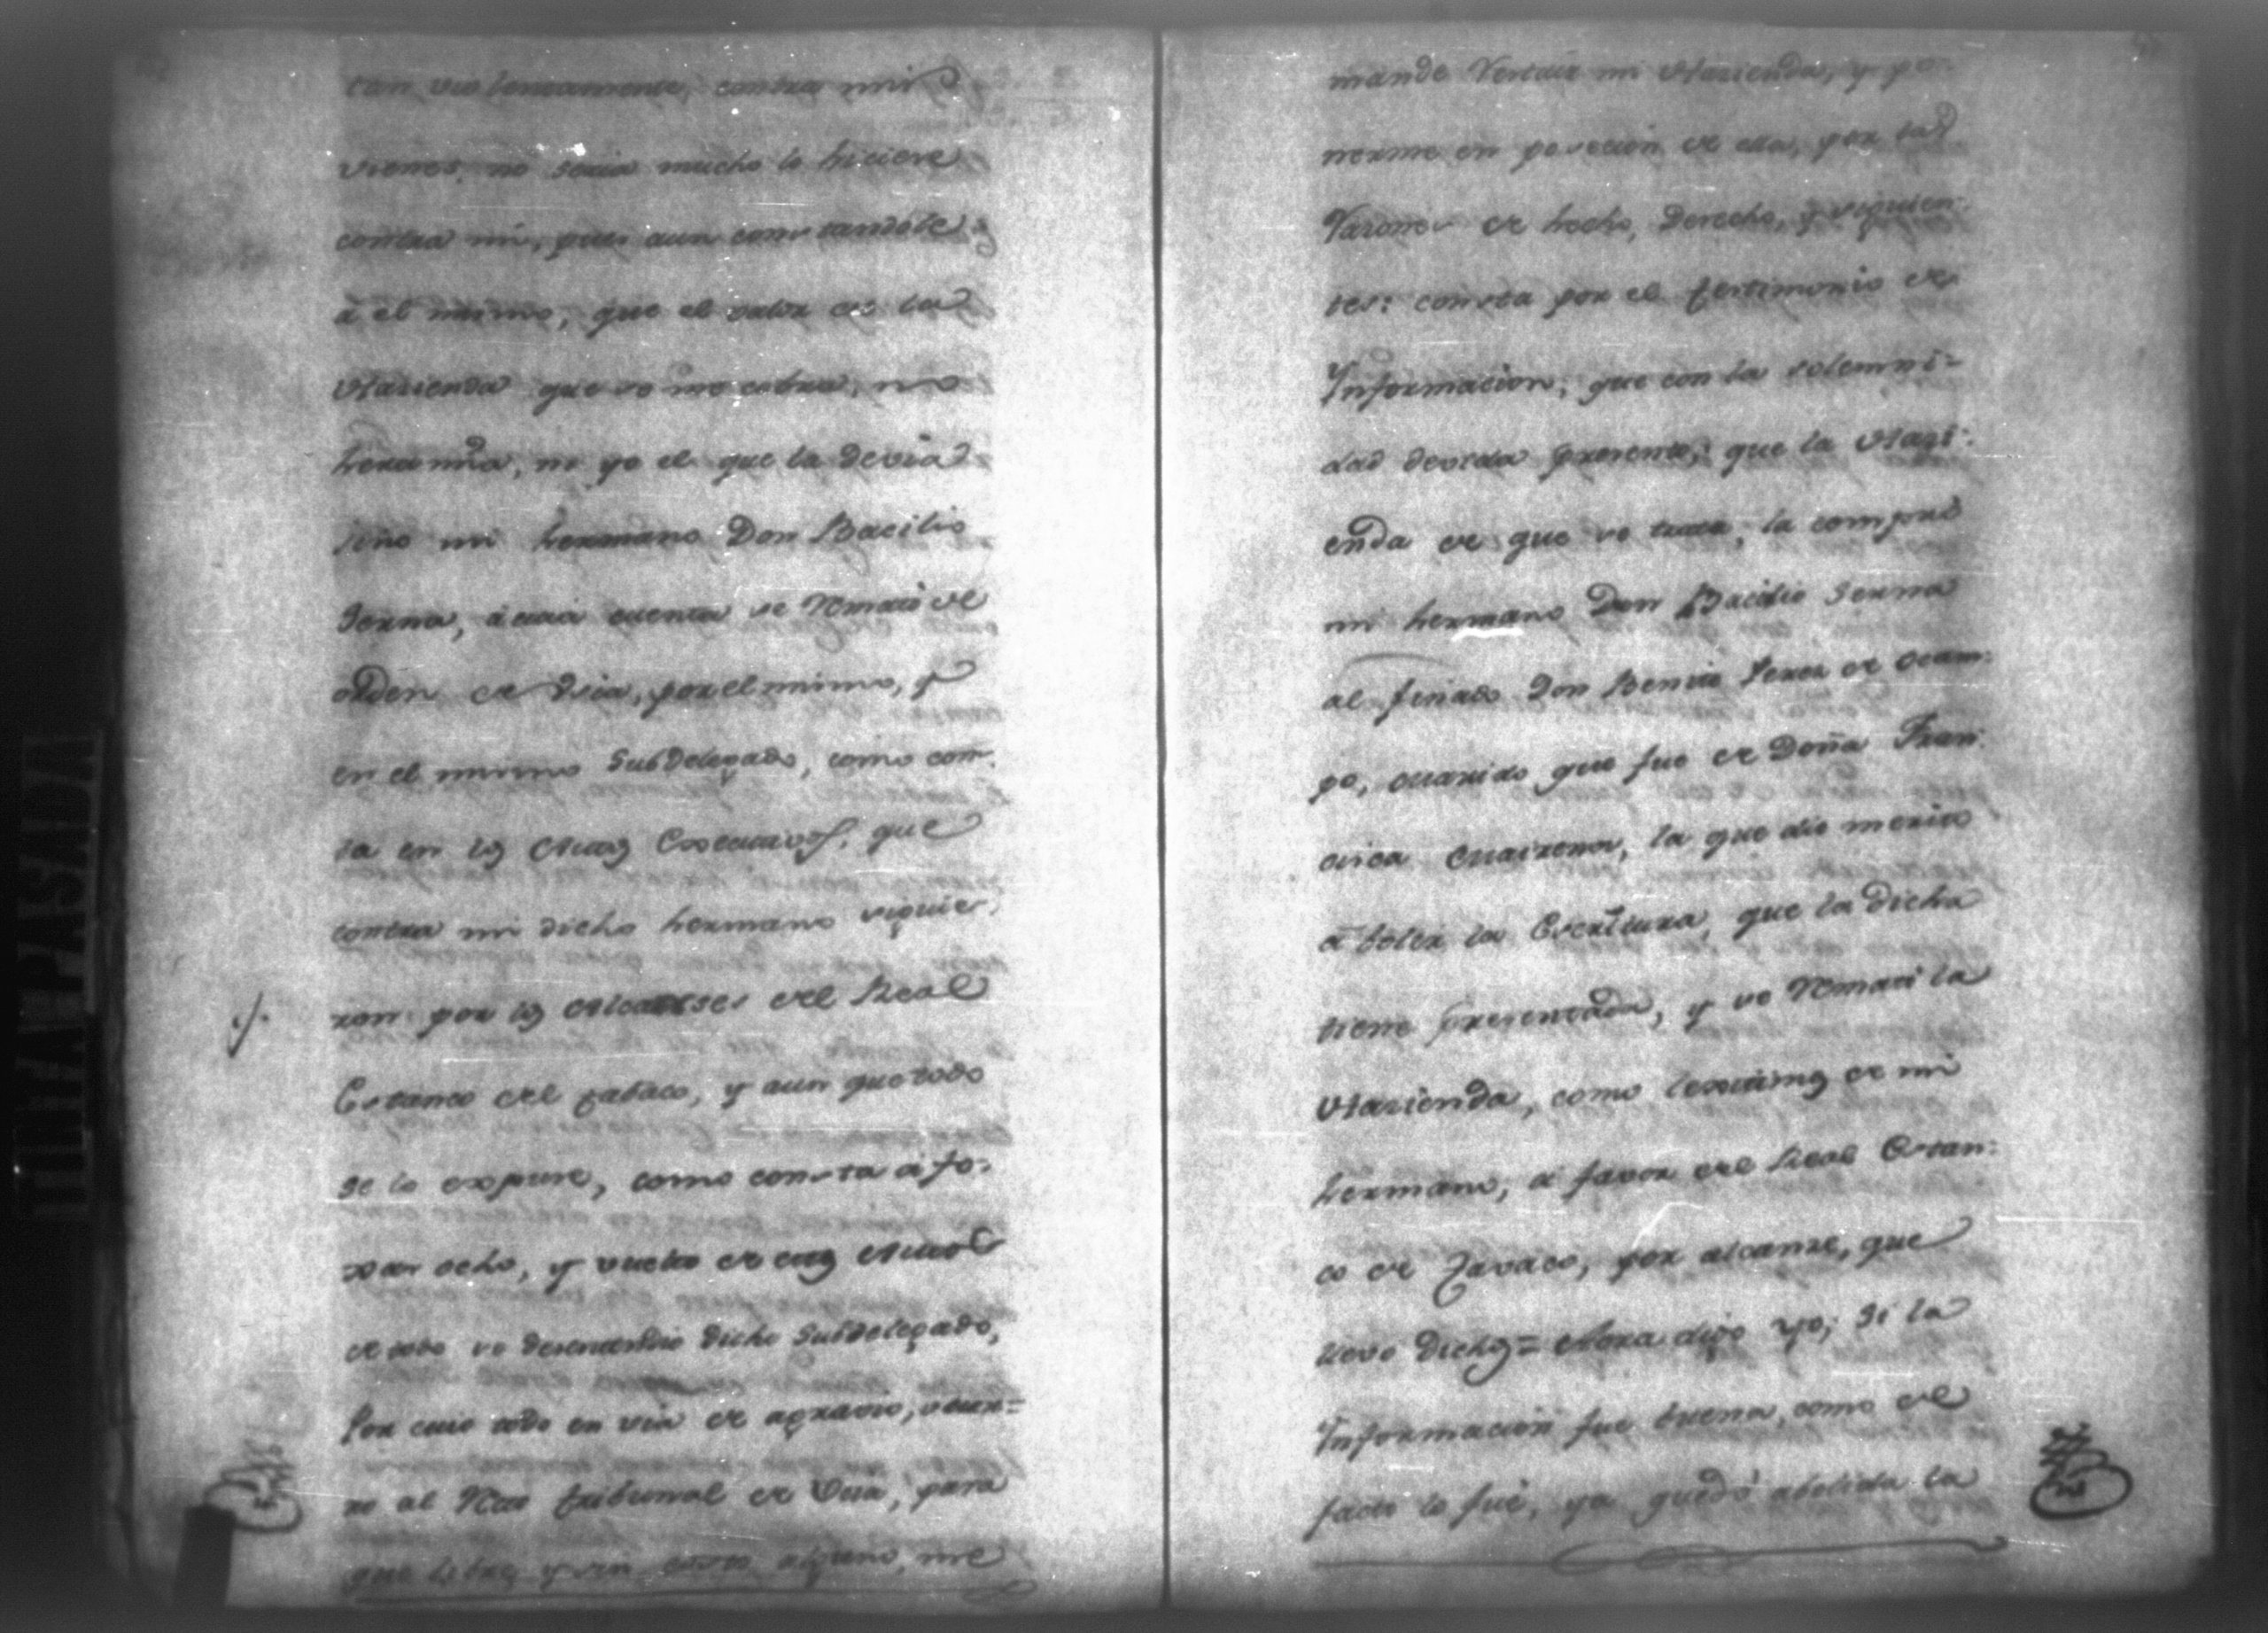 tan violentamente, contra mis
vienes, no seria mucho lo hiciere
contra mi, pues aun constandole
á el mismo, que el valor de la
Hazienda que se me cobra, no
hera mia, ni yo el que la devia
sino mi hermano Don Bacilio
Serna, á cuia cuenta se Remató de
orden de Vsia, por el mismo, y
en el mismo Subdelegado, como cons
ta en los Autos Executivos, que
contra mi dicho hermano siguie
ron por los Alcanses del Real
Estanco del tabaco, y aun que todo
se lo expuse, como consta á fo-
xas ocho, y vuelta de estos Autos
de todo se desentendio dicho Subdelegado,
Por cuio todo en via de agravio, ocur=
ro al Recto tribunal de Vsia, para
que libre y sin costo alguno, me
mande Vertuir mi Hazienda, y po
nerme en posecion de ella, por las
Razones de hecho, Derecho, y siguien
tes: consta por el testimonio de
Ynformacion, que con la solemni=
dad devida presento, que la Hazi
enda de que se trata, la compró
mi hermano Don Bacilio Serna
al finado Don Benito Perez de Ocam
po, Marido que fue de Doña Fran
cisca Mairena, la que dio merito
á boler la Escritura, que la dicha
tiene presentada, y se Remató la
Hazienda, como lexitimos de mi
hermano, á favor del Real Estan
co de Tavaco, por alcanze, que
llevo Dichos = Ahora digo yo; Si la
Ynformacion fue buena, como de
facto lo fué, ya quedó abolida la